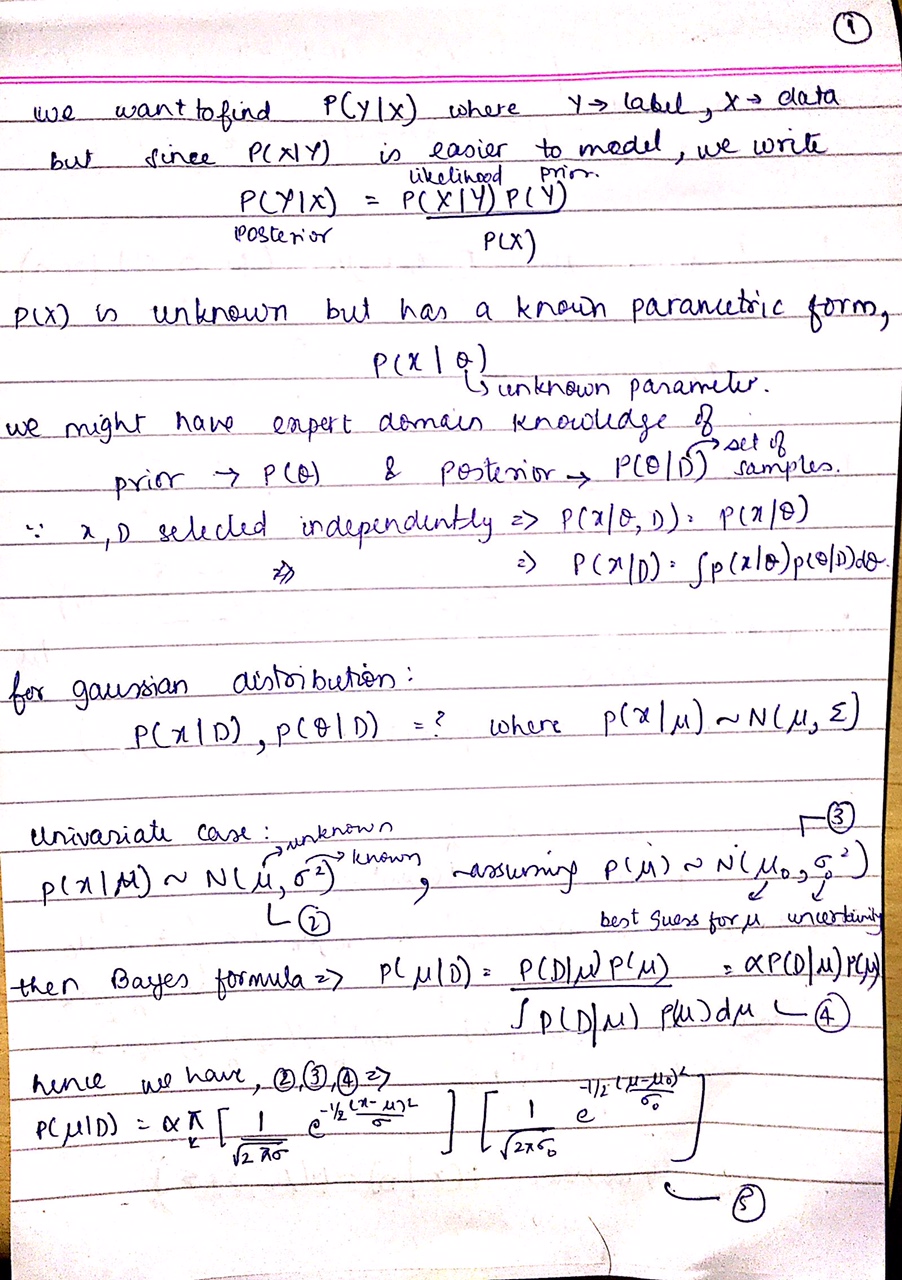 ①
we want to find P(Y|X) where Y→ label, X→ data
but since P(X|Y) is easier to model, we write
likelihood prior.
P(Y|X) = P(X|Y) P(Y)
posterior P(X)
P(X) is unknown but has a known parametric form,
P(x|θ)
↳ unknown parameter.
we might have expert domain knowledge of
prior → P(θ) & Posterior → P(θ|D) → set of samples.
∵ x, D selected independently => P(x|θ, D) = P(x|θ)
=> => P(x|D) = ∫p(x|θ)p(θ|D)dθ.
for gaussian distribution:
P(x|D), p(θ|D) = ? where p(x|μ) ~ N(μ, Σ)
Univariate case: → unknown ③
p(x|μ) ~ N(μ, σ²) → known, assuming p(μ) ~ N(μ₀, σ₀²)
②
best guess for μ uncertainity
then Bayes formula => P(μ|D) = P(D|μ) P(μ) = αP(D|μ)P(μ)
∫ P(D|μ) P(μ) dμ ④
hence we have, ②,③,④ =>
P(μ|D) = α π [ 1/√2πσ e^-1/2 (x-μ)²/σ ] [ 1/√2πσ₀ e^-1/2 (μ-μ₀)²/σ₀ ]
⑤